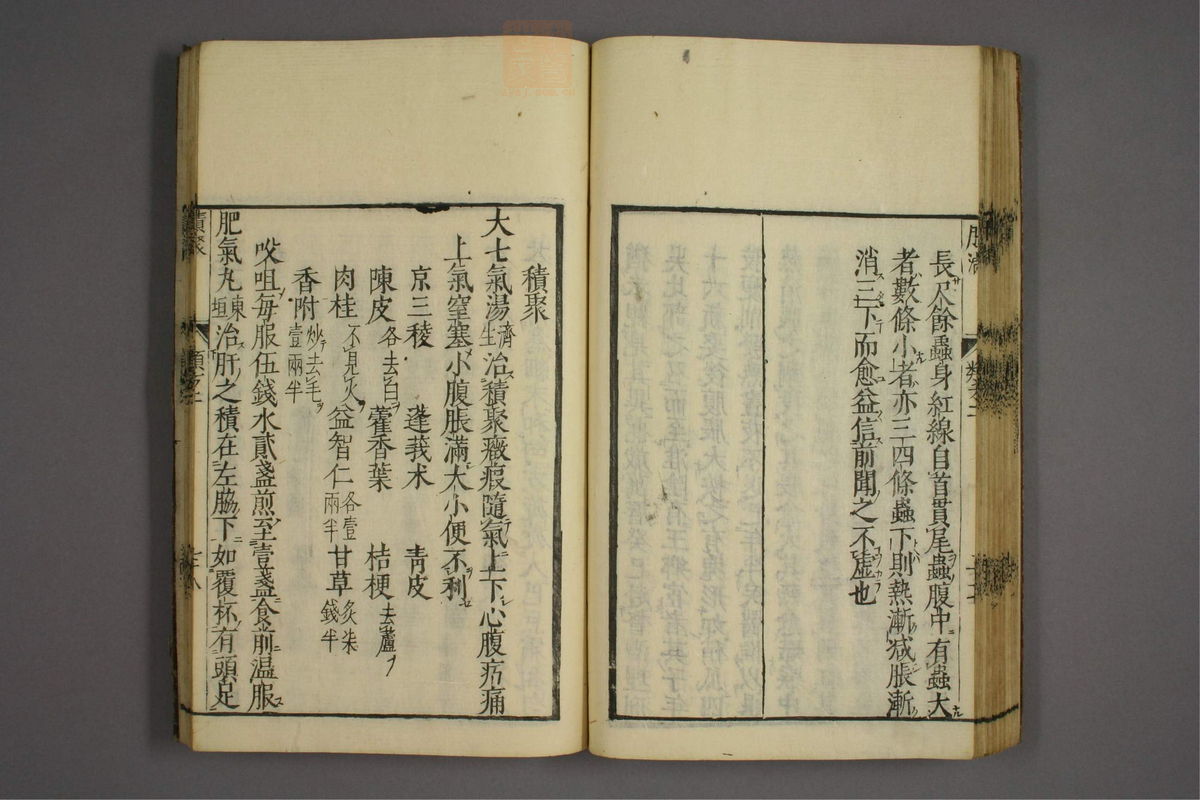 長尺餘蟲身紅線自首貫尾蟲腹中有蟲大
者數條小者亦三四條蟲下則熱漸减脹漸
消三下而愈益信前聞之不虛也
積聚
大七氣湯濟生治積聚癥瘕隨氣上下心腹㽲痛
上氣窒塞小腹脹滿大小便不利
京三稜 蓬莪朮 青皮
陳皮各去白 藿香葉 桔梗去蘆
肉桂不見火 益智仁各壹兩半 甘草炙柒錢半
香附炒去毛壹兩半
㕮咀每服伍錢水貳盞煎至壹盞食前温服
肥氣丸東垣治肝之積在左脇下如覆杯有頭足
積聚